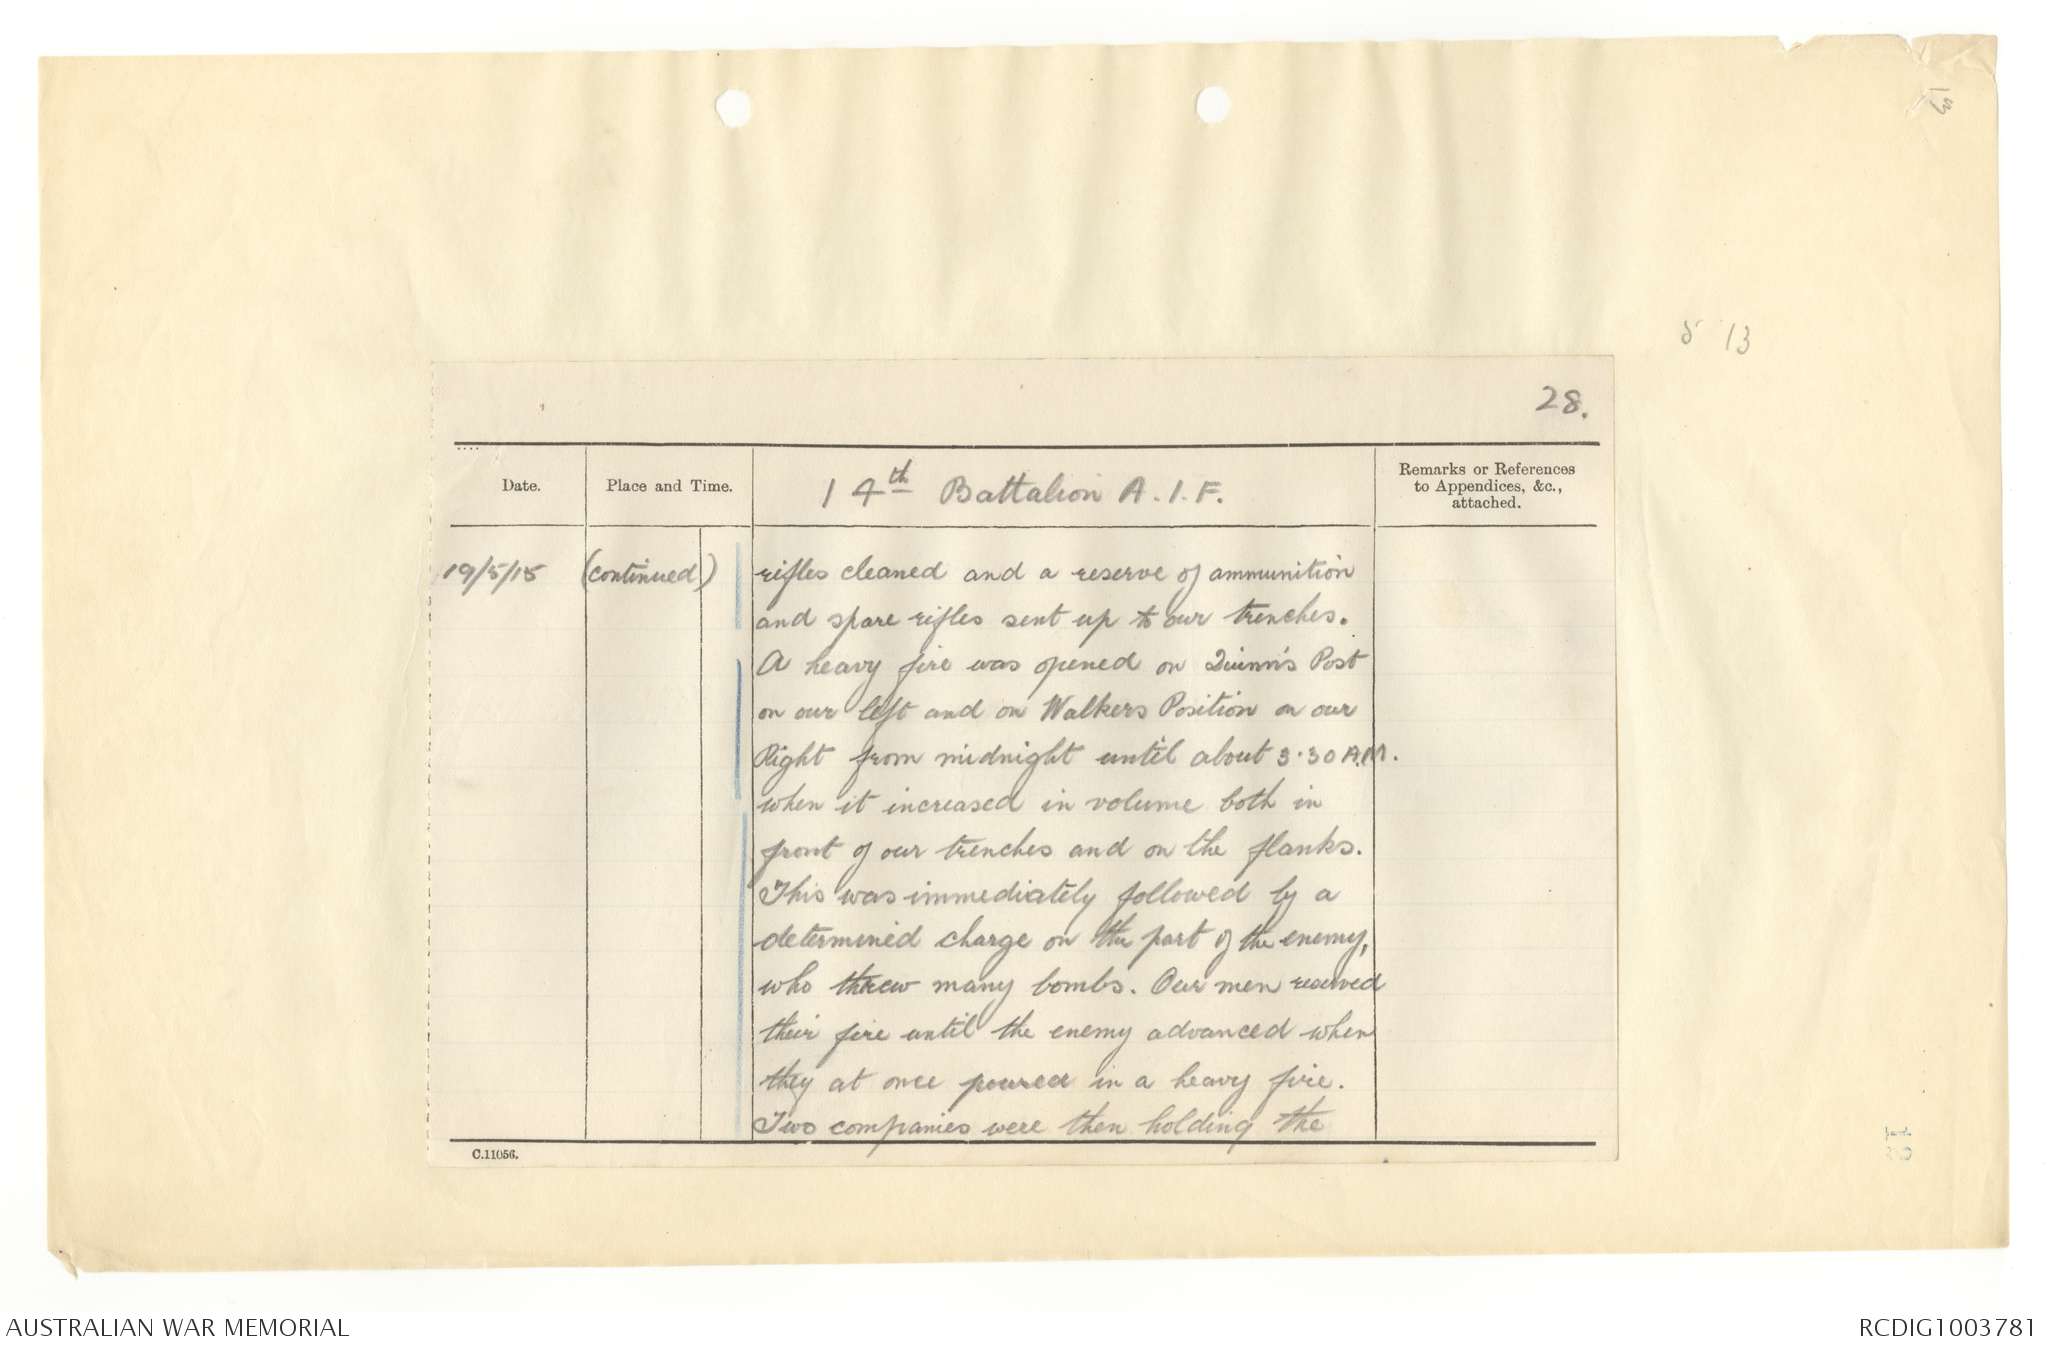 5 13
28.
Date.
Place and Time.
14th Battalion A.I.F.
Remarks or References
to Appendices, &c.,
attached.
19/5/15 (continued) rifles cleaned and a reserve of ammunition
and spare rifles sent up to our trenches.
A heavy fire was opened on Quinn's Post
on our left and on Walkers Position on our
Right from midnight until about 3.30 A.M.
when it increased in volume both in
front of our trenches and on the flanks.
This was immediately followed by a
determined charge on the part of the enemy,
who threw many bombs. Our men reserved
their fire until the enemy advanced when
they at once poured in a heavy fire.
Two companies were then holding the
C.11056.
AUSTRALIAN WAR MEMORIAL
RCDIG1003781